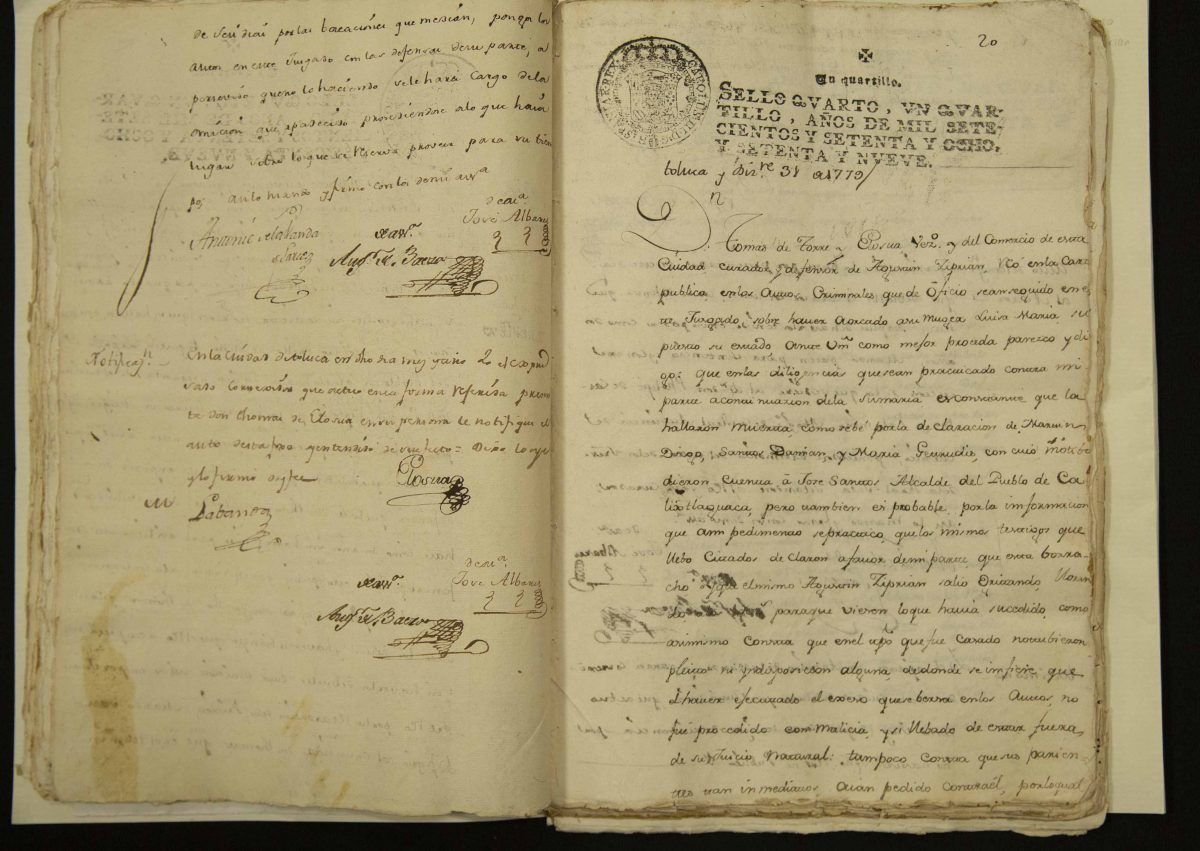 de seis dias por las vacaciones que median, ponga los
autos en este Juzgado con las defensas de su parte, a
persevido que no lo haciendo se le hará Cargo de la
omición que apareciese procediendose a lo que haia
lugar sobre lo que se reserva proveer para su tiem
po; asi lo mandó y firmó con los de mi assª
Antonio
de asª
José Albares
de assª
Augn. H. Baeza
Notificasn.
En la Ciudad de toluca en dho dia mes y año
Corregidor que actuo en la forma referida presen
te don thomas de Elosua en su persona le notifique el
auto de esta foxa y entendido de su efecto = Dixo lo oye
y lo firmó doy fee
Elosua
Labanda
de asª
José Albares
de assª
Augn. H. Baeza
20
CAROLUS III D G HISPANIAR REX
Un quartillo.
SELLO QVARTO, VN QVAR-
TILLO, AÑOS DE MIL SETE-
CIENTOS Y SETENTA Y OCHO,
Y SETENTA Y NVEVE.
toluca y Dizre. 31 de 1779
Dn
Tomas de Torre y Elosua Vezo. y del Comercio de esta
Ciudad curador y defensor de Agustin Ziprian, Rò en la Carz
publica en los Autos Criminales que de Oficio se an seguido en es
te Jusgado, sobre haver aorcado a su Muger Luisa Maria, su
puesto su estado Ante Vm como mejor proceda paresco y di
go: que en las diligencias que se an practicado contra mi
parte a continuazion de la sumaria es constante que la
hallaron muerta, como se bé por la de claracion de Marcos
Diego, Santos Damian, y Maria Getrudis, con cuio motibo
dieron cuenta â Jose Santos Alcalde del Pueblo de Ca
lixtlaguaca, pero tambien es probable, por la informacion
que a mi pedimento se practicó, que los mismos testigos que
llebo Citados de claron a favor de mi parte que esta borra
cho y que el mismo Agustin Ziprian salio Gritando, lloran
do para que vieren lo que havia succedido, como
asimismo consta que en el tpõ que fue casado no tubieron
pleitos ni indisposicion alguna, de donde se infiere que
el haver ejecutado el exeso que se berza en los Autos, no
fué procedido con malicia, y si llebado de estar fuera
de su Juicio Natural: tampoco consta que sus parien
tes tan inmediatos, aian pedido contra él, por lo qual